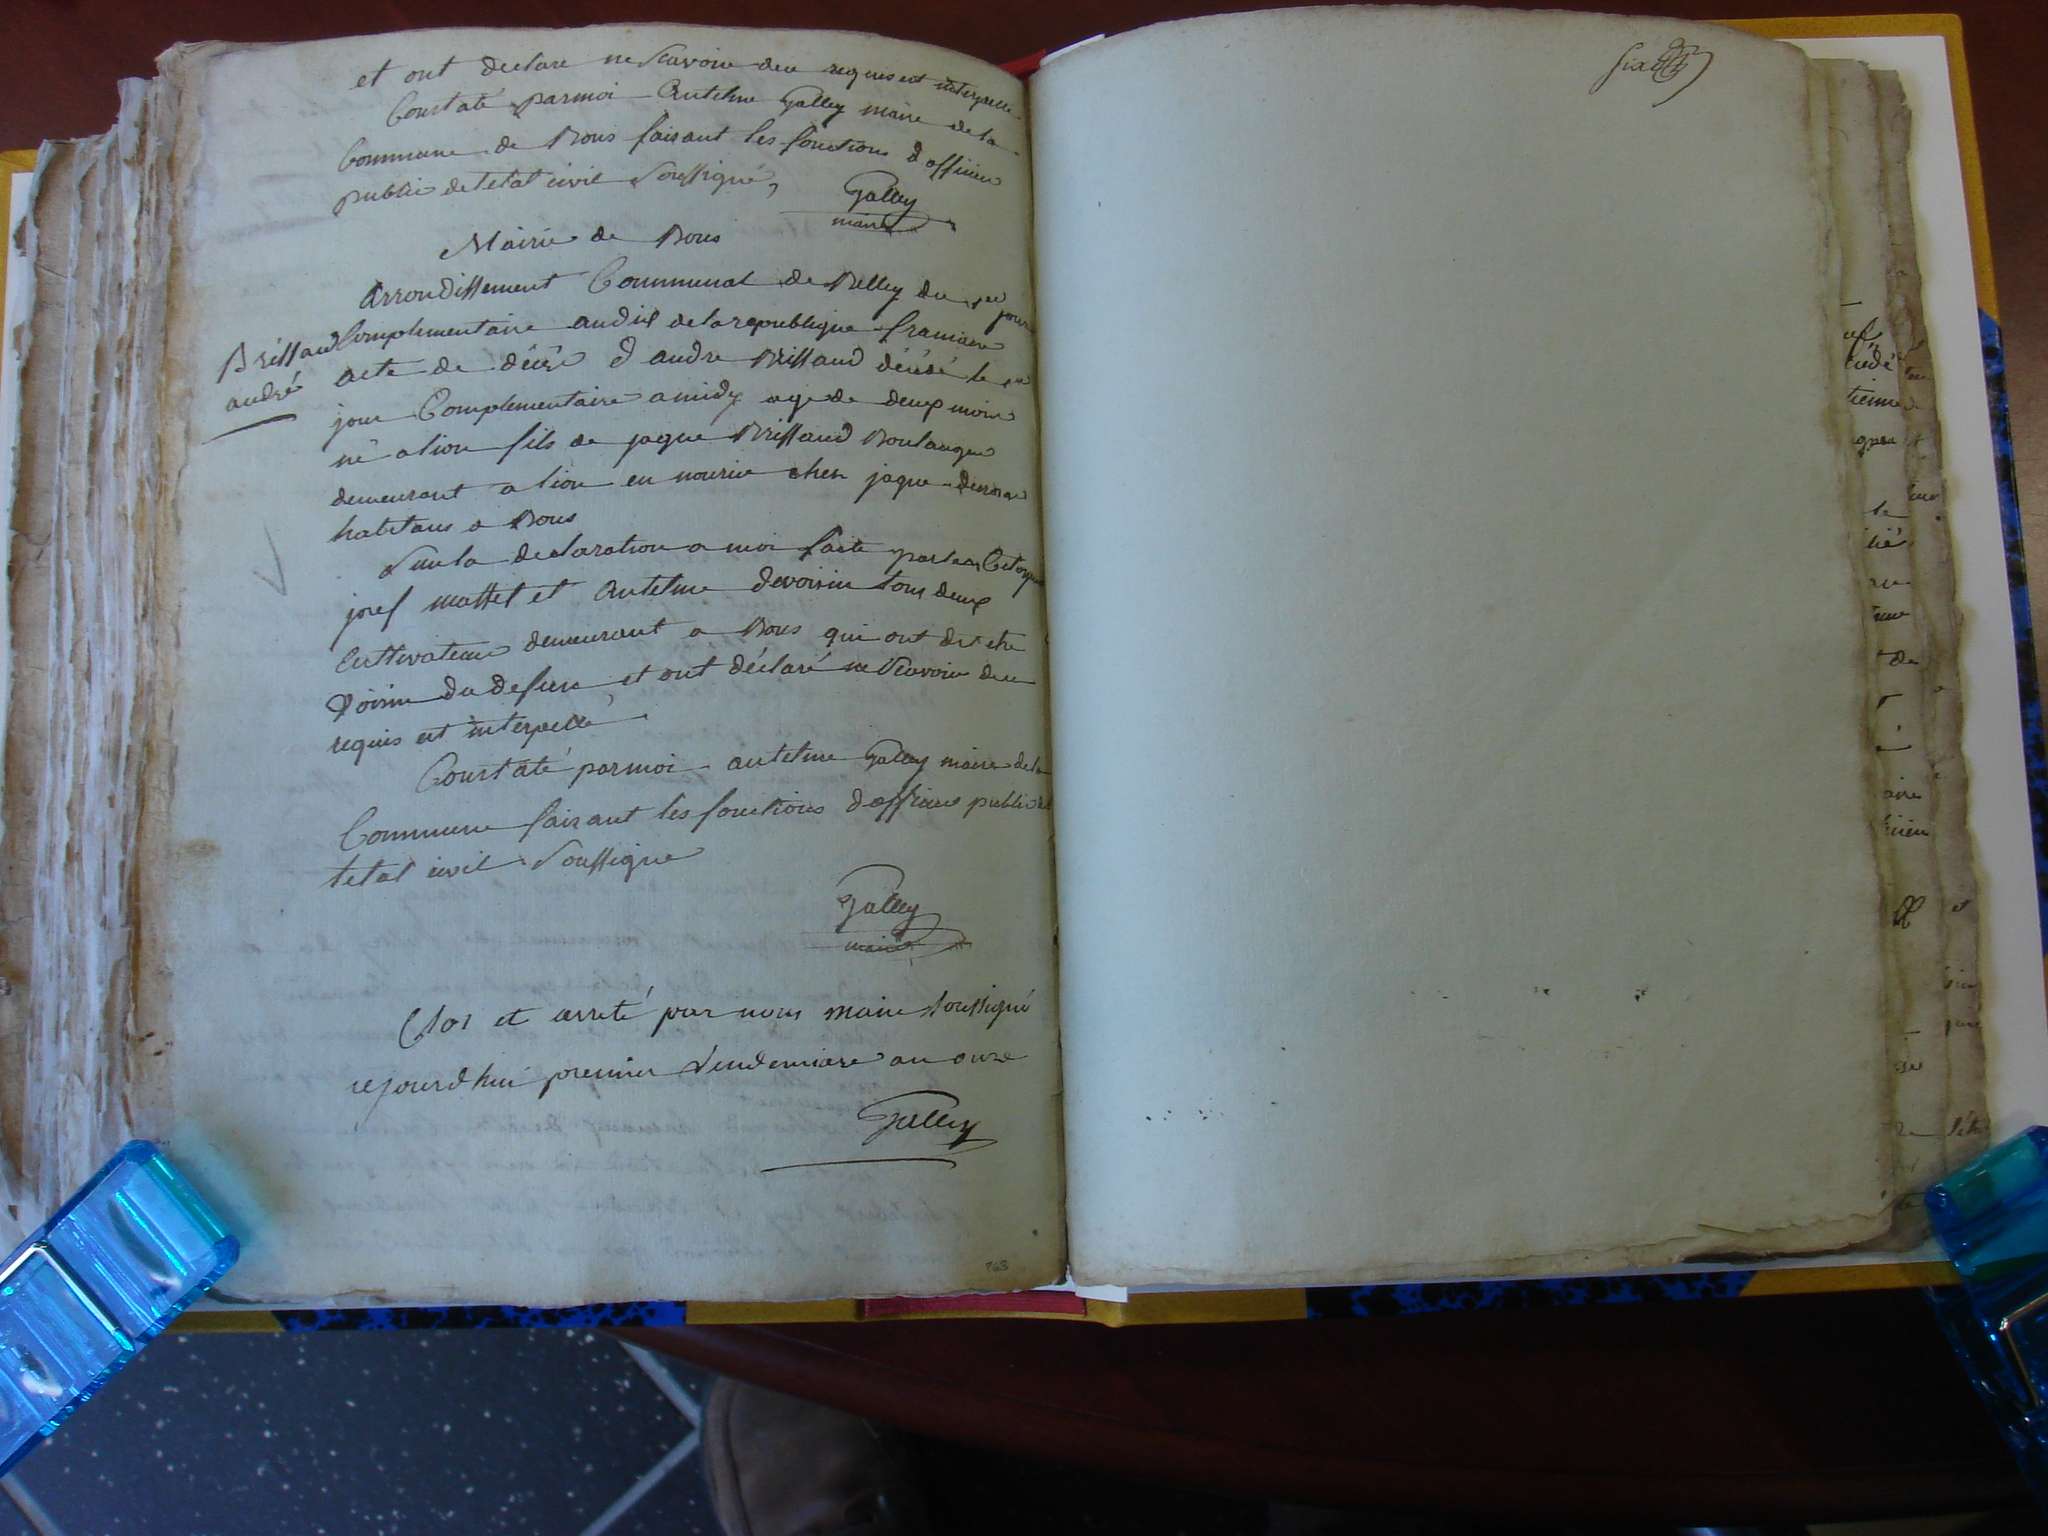 et ont declare ne scavoir de ce requis et interpellé
Constaté par moi Antelme Galley maire de la
Commune de Bons faisant les fonctions d officier
public de letat civil Soussigné,
Galley
maire
Mairie de Bons
Arrondissement Communal de Belley du 1er jour
Complementaire an dix de la republique francaise
Brissaud
andré
acte de décès d andre Brissaud décédé le 1er
jour Complementaire a midy age de deux mois
né a lion fils de jaque Brissaud Boulanger
demeurant a lion en nourice chez jaque
habitans a Bons
Sur la declaration a moi faite par les Citoyens
josef mattet et Antelme devoisin tous deux
Cultivateur demeurant a Bons qui ont dit etre
voisin du defunt et ont déclaré ne Scavoir de ce
requis est interpellé
Constaté par moi antelme Galley maire de la
Commune faisant les fonctions d officier public de
letat civil Soussigne
Galley
maire
Clos et arreté par nous maire soussigné
cejourdhui premier Vendemiare an onze
Galley
763